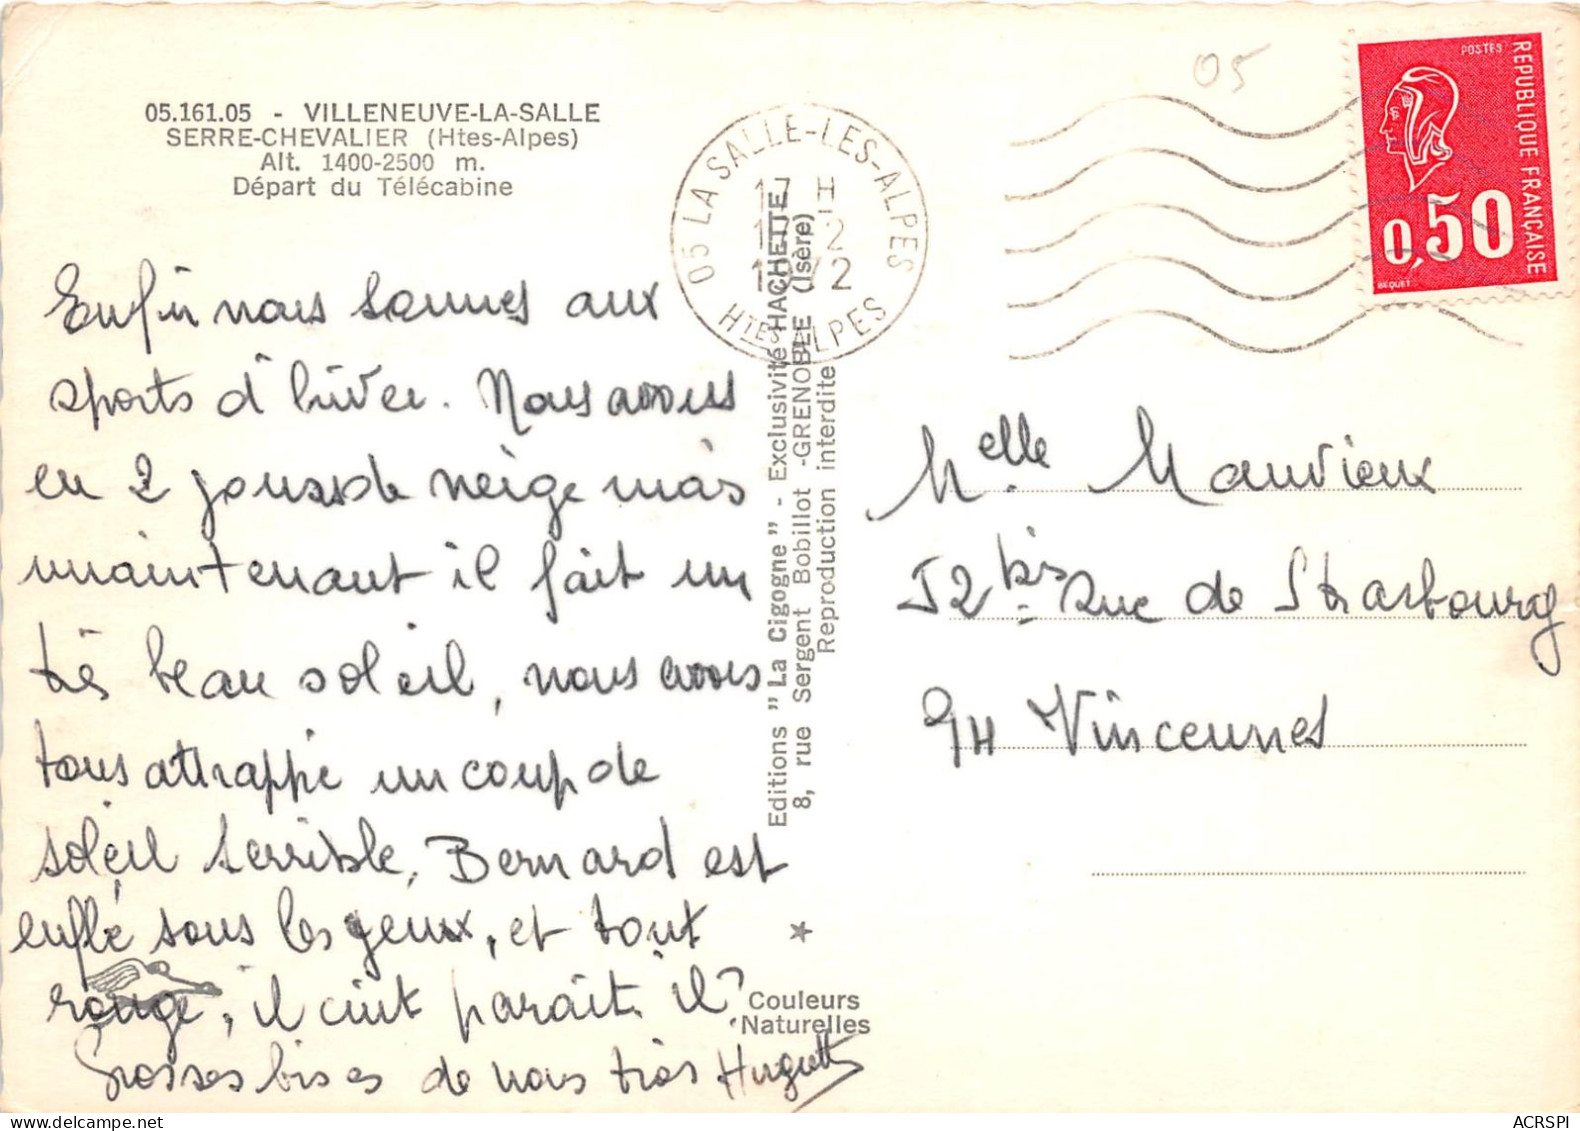 05.161.05 - VILLENEUVE-LA-SALLE
SERRE-CHEVALIER (Htes-Alpes)
Alt. 1400-2500 m.
Départ du Télécabine
Enfin nous sommes aux
sports d'hiver. Nous avons
eu 2 jours de neige mais
maintenant il fait un
très beau soleil, nous avons
tous attrappé un coup de
soleil terrible, Bernard est
enflé sous les yeux, et tout
rouge, il cuit parait-il?
Grosses bises de nous trois Huguette
Editions "La Cigogne" - Exclusivité HACHETTE
8, rue Sergent Bobillot -GRENOBLE (Isère)
Reproduction interdite
Couleurs
Naturelles
05 LA SALLE-LES-ALPES
17 H
17-2
1972
Htes ALPES
05
POSTES
REPUBLIQUE FRANÇAISE
0,50
BEQUET
Melle Mauvieux
52 bis Rue de Strasbourg
94 Vincennes
ACRSPI